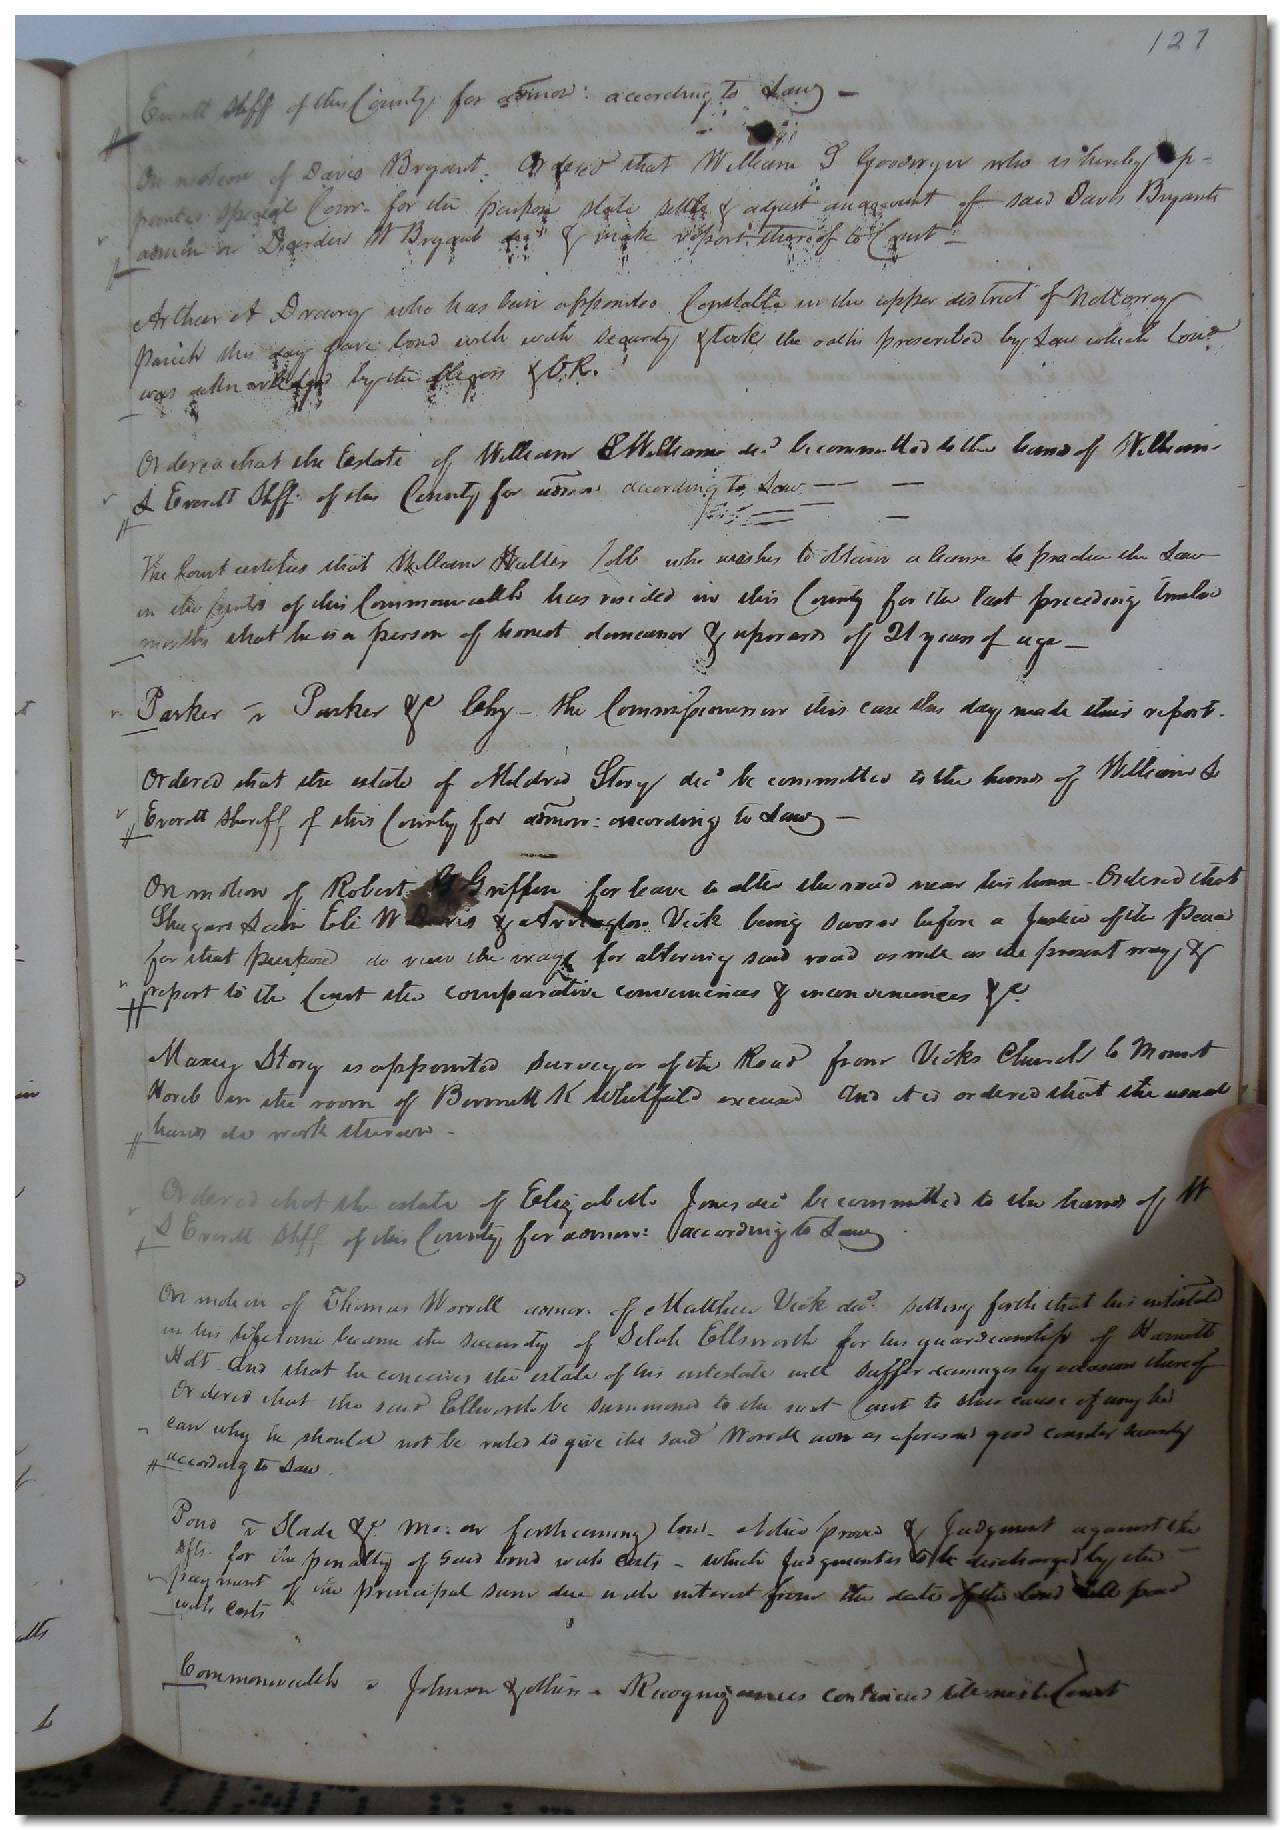 127
Everett Shff of this County for admon: according to Law —
On motion of Davis Bryant. Ordered that William S Goodwyn who is hereby ap=
pointed special Comr. for the purpose state settle & adjust an account of said Davis Bryants
admtn on W Bryant decd & make report thereof to Court —
Arthur A Drewry who has been appointed Constable in the upper district of Nottoway
Parish this day gave bond with with security & took the oaths prescribed by Law which bond
was acknowledged by the obligors & O.R.
Ordered that the Estate of William Williams decd be committed to the hands of William
S Everett Shff. of this County for admon according to Law —
The Court certifies that William Walter who wishes to obtain a license to practice the Law
in the Courts of this Commonwealth has resided in this County for the last preceding twelve
months that he is a person of honest demeanor & upwards of 21 years of age —
Parker vs Parker &c Chy — the Commissioners in this case this day made their report.
Ordered that the estate of Mildred Story decd be committed to the hands of William S
Everett Sheriff of this County for admon: according to Law —
On motion of Robert G Griffin for leave to alter the road near his house. Ordered that
Eli W Davis & Arrington Vick being sworn before a Justice of the Peace
for that purpose do view the ways for altering said road as well as the present way, &
report to the Court the comparative conveniences & inconveniences &c
Maxey Story is appointed surveyor of the Road from Vicks Church to Mount
Horeb in the room of Bennett K Whitfield excused And it is ordered that the usual
hands do work thereon —
Ordered that the estate of Elizabeth Jones decd be committed to the hands of W
S Everett Shff of this County for admon: according to Law
On motion of Thomas Worrell admor. of Matthew Vick decd. setting forth that his intestate
in his lifetime became the security of Selah Ellsworth for his guardianship of Harriett
Holt and that he conceives the estate of his intestate will suffer damages by occasion thereof
Ordered that the said Ellsworth be summoned to the next Court to shew cause if any he
can why he should not be ruled to give the said Worrell adm as aforesaid good counter security
according to Law.
Pond vs Slade &c. Mo: on forthcoming bond. Notice proved & Judgment against the
dfts. for the penalty of said bond with costs — which Judgment is to be discharged by the
payment of the principal sum due with interest from the date of the bond till paid
with costs
Commonwealth vs Johnson & others — Recognizances continued till next Court